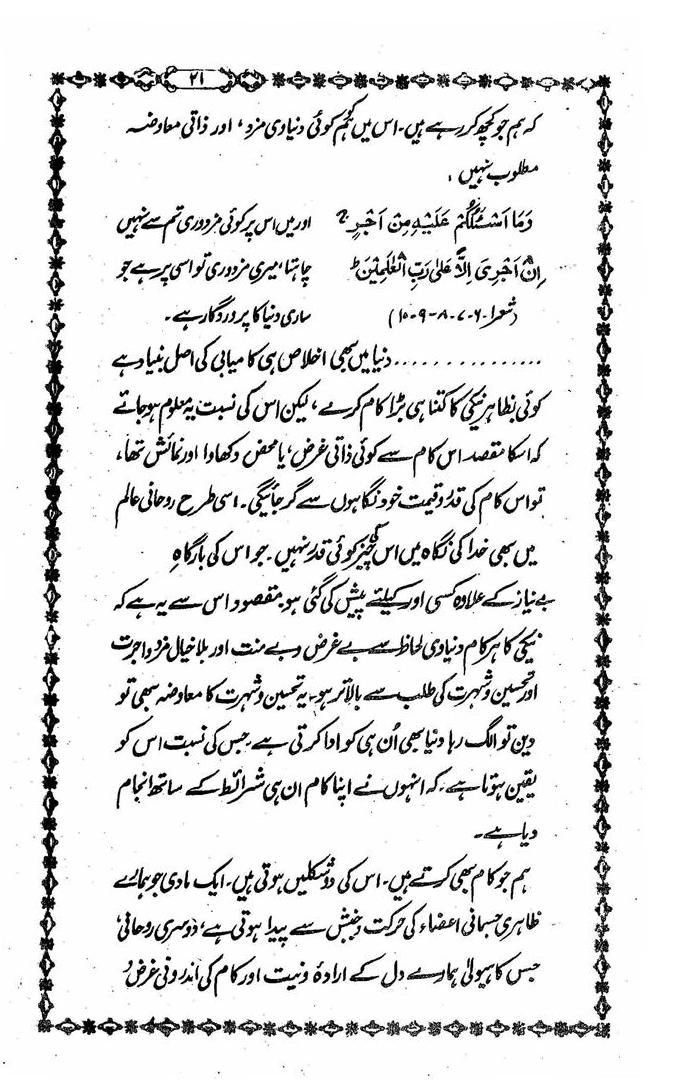 ۲۱
کہ ہم جو کچھ کر رہے ہیں۔ اس میں ہم کوئی دنیاوی مزد، اور ذاتی معاوضہ
مطلوب نہیں،
وَمَا اَسْـَٔلُكُمْ عَلَيْهِ مِنْ اَجْرٍ ج اور میں اس پر کوئی مزدوری تم سے نہیں
اِنْ اَجْرِىَ اِلَّا عَلٰى رَبِّ الْعٰلَمِيْنَ ط چاہتا، میری مزدوری تو اسی پر ہے جو
(شعرا۔ ۶۔ ۷۔ ۸۔ ۹۔ ۱۰) ساری دنیا کا پروردگار ہے۔
.............. دنیا میں بھی اخلاص ہی کامیابی کی اصل بنیاد ہے
کوئی بظاہر نیکی کا کتنا ہی بڑا کام کرے، لیکن اس کی نسبت یہ معلوم ہو جائے
کہ اسکا مقصد اس کام سے کوئی ذاتی غرض، یا محض دکھاوا اور نمائش تھا،
تو اس کام کی قدر و قیمت خود نگاہوں سے گر جائیگی۔ اسی طرح روحانی عالم
میں بھی خدا کی نگاہ میں اس چیز کی کوئی قدر نہیں۔ جو اس کی بارگاہِ
بے نیاز کے علاوہ کسی اور کیلئے پیش کی گئی ہو، مقصود اس سے یہ ہے کہ
نیکی کا ہر کام دنیاوی لحاظ سے بے غرض و بے منت اور بلا خیال مزد و اجرت
اور تحسین و شہرت کی طلب سے بالاتر ہو، یہ تحسین و شہرت کا معاوضہ بھی تو
دین تو الگ رہا دنیا بھی اُن ہی کو ادا کرتی ہے، جس کی نسبت اس کو
یقین ہوتا ہے، کہ انہوں نے اپنا کام ان ہی شرائط کے ساتھ انجام
دیا ہے۔
ہم جو کام بھی کرتے ہیں۔ اس کی دو شکلیں ہوتی ہیں۔ ایک مادی جو ہمارے
ظاہری جسمانی اعضاء کی حرکت و جنبش سے پیدا ہوتی ہے، دوسری روحانی،
جس کا ہیولیٰ ہمارے دل کے ارادہ و نیت اور کام کی اندرونی غرض و